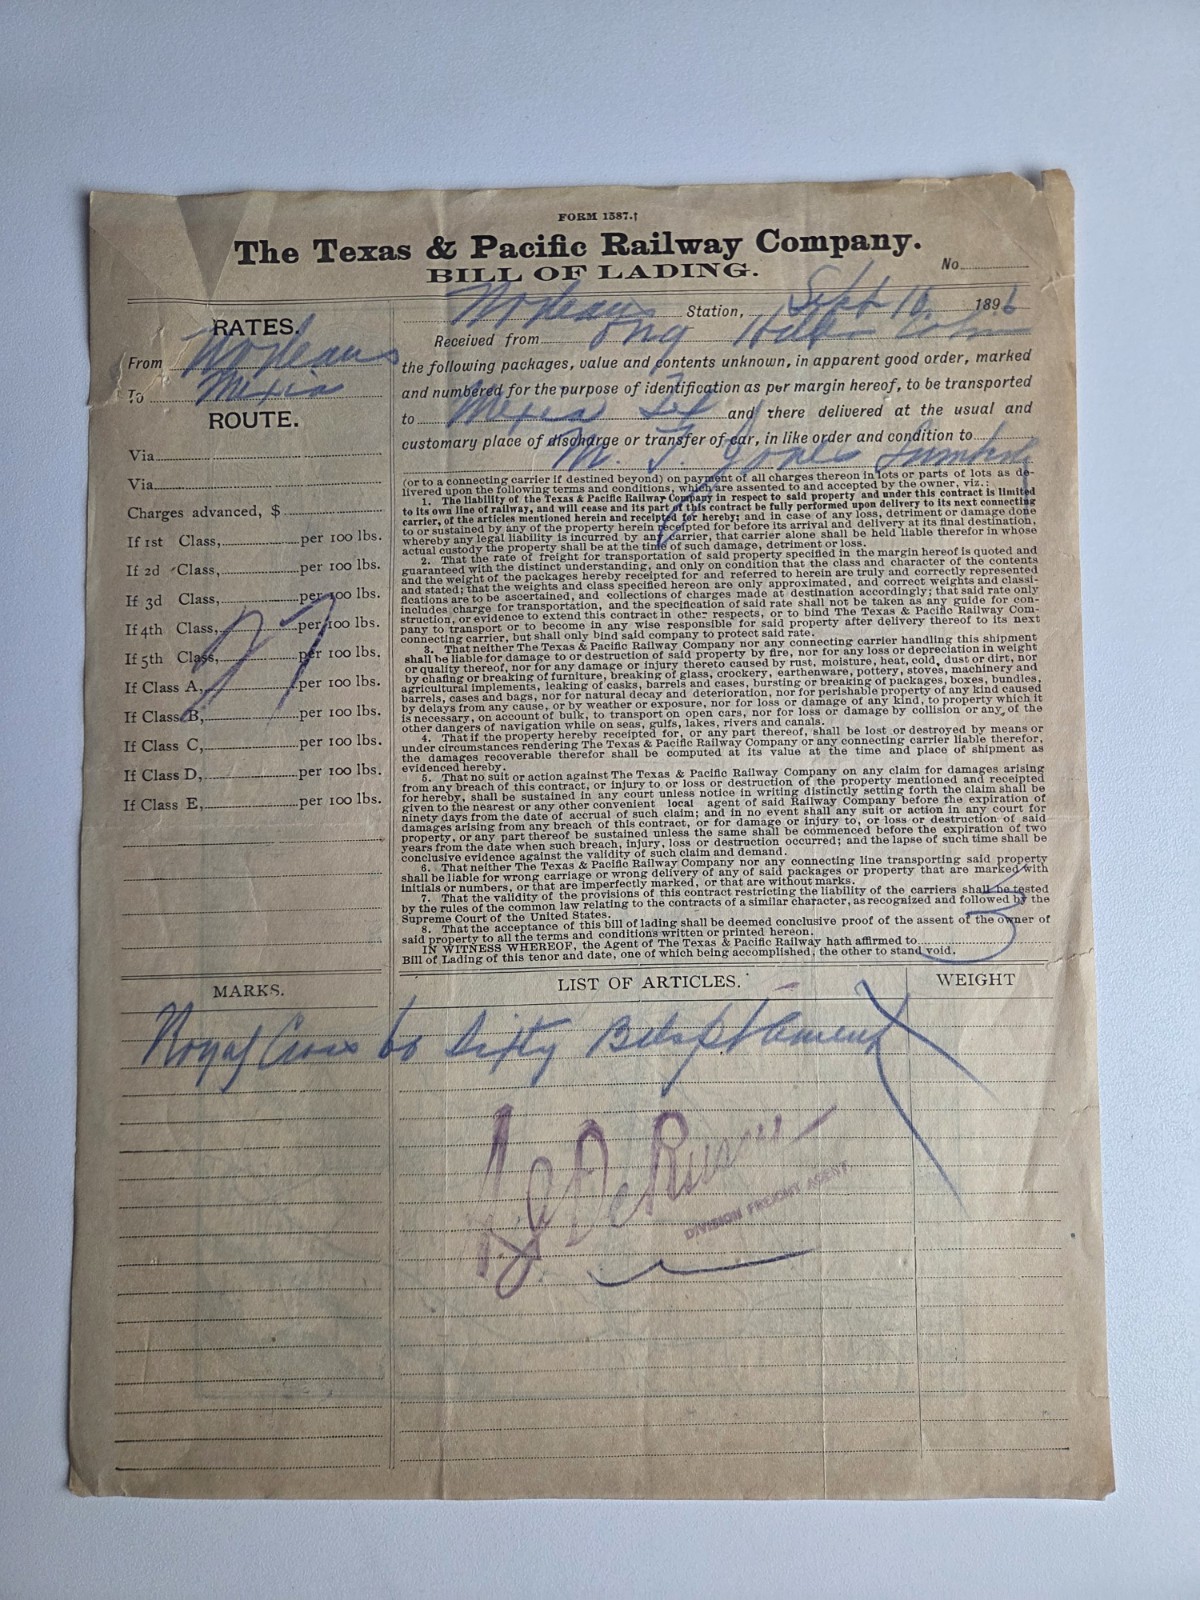 FORM 1387.†
The Texas & Pacific Railway Company.
BILL OF LADING.
No.
N Orleans Station, Sept 10 1896
Received from
the following packages, value and contents unknown, in apparent good order, marked
and numbered for the purpose of identification as per margin hereof, to be transported
to Mexia Tex and there delivered at the usual and
customary place of discharge or transfer of car, in like order and condition to
M. T. Jones Lumber
RATES.
From N Orleans
To Mexia
ROUTE.
Via
Via
Charges advanced, $
If 1st Class, per 100 lbs.
If 2d Class, per 100 lbs.
If 3d Class, per 100 lbs.
If 4th Class, per 100 lbs.
If 5th Class, per 100 lbs.
If Class A, per 100 lbs.
If Class B, per 100 lbs.
If Class C, per 100 lbs.
If Class D, per 100 lbs.
If Class E, per 100 lbs.
27
(or to a connecting carrier if destined beyond) on payment of all charges thereon in lots or parts of lots as de-
livered upon the following terms and conditions, which are assented to and accepted by the owner, viz.:
1. The liability of the Texas & Pacific Railway Company in respect to said property and under this contract is limited
to its own line of railway, and will cease and its part of this contract be fully performed upon delivery to its next connecting
carrier, of the articles mentioned herein and receipted for hereby; and in case of any loss, detriment or damage done
to or sustained by any of the property herein receipted for before its arrival and delivery at its final destination,
whereby any legal liability is incurred by any carrier, that carrier alone shall be held liable therefor in whose
actual custody the property shall be at the time of such damage, detriment or loss.
2. That the rate of freight for transportation of said property specified in the margin hereof is quoted and
guaranteed with the distinct understanding, and only on condition that the class and character of the contents
and the weight of the packages hereby receipted for and referred to herein are truly and correctly represented
and stated; that the weights and class specified herein are only approximated, and correct weights and classi-
fications are to be ascertained, and collections of charges made at destination accordingly; that said rate only
includes charge for transportation, and the specification of said rate shall not be taken as any guide for con-
struction, or evidence to extend this contract in other respects, or to bind The Texas & Pacific Railway Com-
pany to transport or to become in any wise responsible for said property after delivery thereof to its next
connecting carrier, but shall only bind said company to protect said rate.
3. That neither The Texas & Pacific Railway Company nor any connecting carrier handling this shipment
shall be liable for damage to or destruction of said property by fire, nor for any loss or depreciation in weight
or quality thereof, nor for any damage or injury thereto caused by rust, moisture, heat, cold, dust or dirt, nor
by chafing or breaking of furniture, breaking of glass, crockery, earthenware, pottery, stoves, machinery and
agricultural implements, leaking of casks, barrels and cases, bursting or breaking of packages, boxes, bundles,
barrels, cases and bags, nor for natural decay and deterioration, nor for perishable property of any kind caused
by delays from any cause, or by weather or exposure, nor for loss or damage of any kind, to property which it
is necessary, on account of bulk, to transport on open cars, nor for loss or damage by collision or any of the
other dangers of navigation while on seas, gulfs, lakes, rivers and canals.
4. That if the property hereby receipted for, or any part thereof, shall be lost or destroyed by means or
under circumstances rendering The Texas & Pacific Railway Company or any connecting carrier liable therefor,
the damages recoverable therefor shall be computed at its value at the time and place of shipment as
evidenced hereby.
5. That no suit or action against The Texas & Pacific Railway Company on any claim for damages arising
from any breach of this contract, or injury to or loss or destruction of the property mentioned and receipted
for hereby, shall be sustained in any court unless notice in writing distinctly setting forth the claim shall be
given to the nearest or any other convenient local agent of said Railway Company before the expiration of
ninety days from the date of accrual of such claim; and in no event shall any suit or action in any court for
damages arising from any breach of this contract, or for damage or injury to, or loss or destruction of said
property, or any part thereof be sustained unless the same shall be commenced before the expiration of two
years from the date when such breach, injury, loss or destruction occurred; and the lapse of such time shall be
conclusive evidence against the validity of such claim and demand.
6. That neither The Texas & Pacific Railway Company nor any connecting line transporting said property
shall be liable for wrong carriage or wrong delivery of any of said packages or property that are marked with
initials or numbers, or that are imperfectly marked, or that are without marks.
7. That the validity of the provisions of this contract restricting the liability of the carriers shall be tested
by the rules of the common law relating to the contracts of a similar character, as recognized and followed by the
Supreme Court of the United States.
8. That the acceptance of this bill of lading shall be deemed conclusive proof of the assent of the owner of
said property to all the terms and conditions written or printed hereon.
IN WITNESS WHEREOF, the Agent of The Texas & Pacific Railway hath affirmed to 3
Bill of Lading of this tenor and date, one of which being accomplished, the other to stand void.
MARKS. LIST OF ARTICLES. WEIGHT
Royal Cross 60 Sixty Bbls
DIVISION FREIGHT AGENT